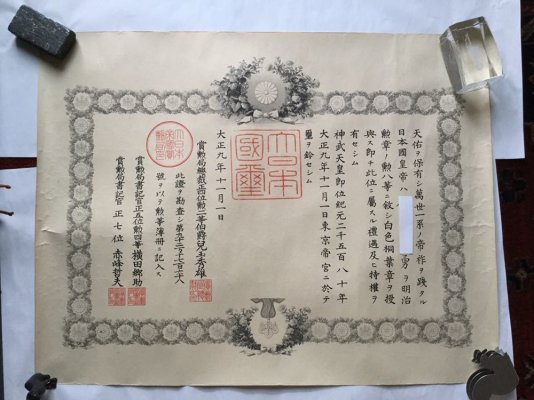 天佑ヲ保有シ萬世一系ノ帝祚ヲ踐タル
日本國皇帝ハ 勇ヲ明治
勲章ノ勲八等ニ敘シ白色桐葉章ヲ授
與ス即チ此位ニ屬スル禮遇及ヒ特權ヲ
有セシム
神武天皇即位紀元二千五百八十年
大正九年十一月一日東京帝宮ニ於テ
璽ヲ鈐セシム
大日本國璽
大正九年十一月一日
賞勲局總裁正四位勲二等伯爵兒玉秀雄
此證ヲ勘査シ第
號ヲ以テ勲等簿冊ニ記入ス
賞勲局書記官正五位勲四等横田郷助
賞勲局書記官正七位赤峰哲夫